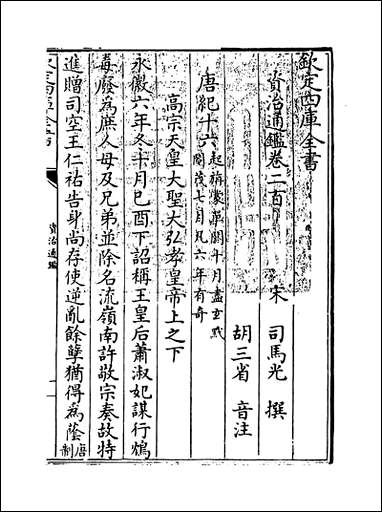 欽定四庫全書
資治通鑑卷二百
宋 司馬光 撰
胡三省 音注
唐紀十六
起旃蒙單閼十月盡玄黓
閹茂七月凡六年有奇
高宗天皇大聖大弘孝皇帝上之下
永徽六年冬十月己酉下詔稱王皇后蕭淑妃謀行鴆
毒廢為庶人母及兄弟並除名流嶺南許敬宗奏故特
進贈司空王仁祐告身尚存使逆亂餘孽猶得為蔭
唐
制
資治通鑑